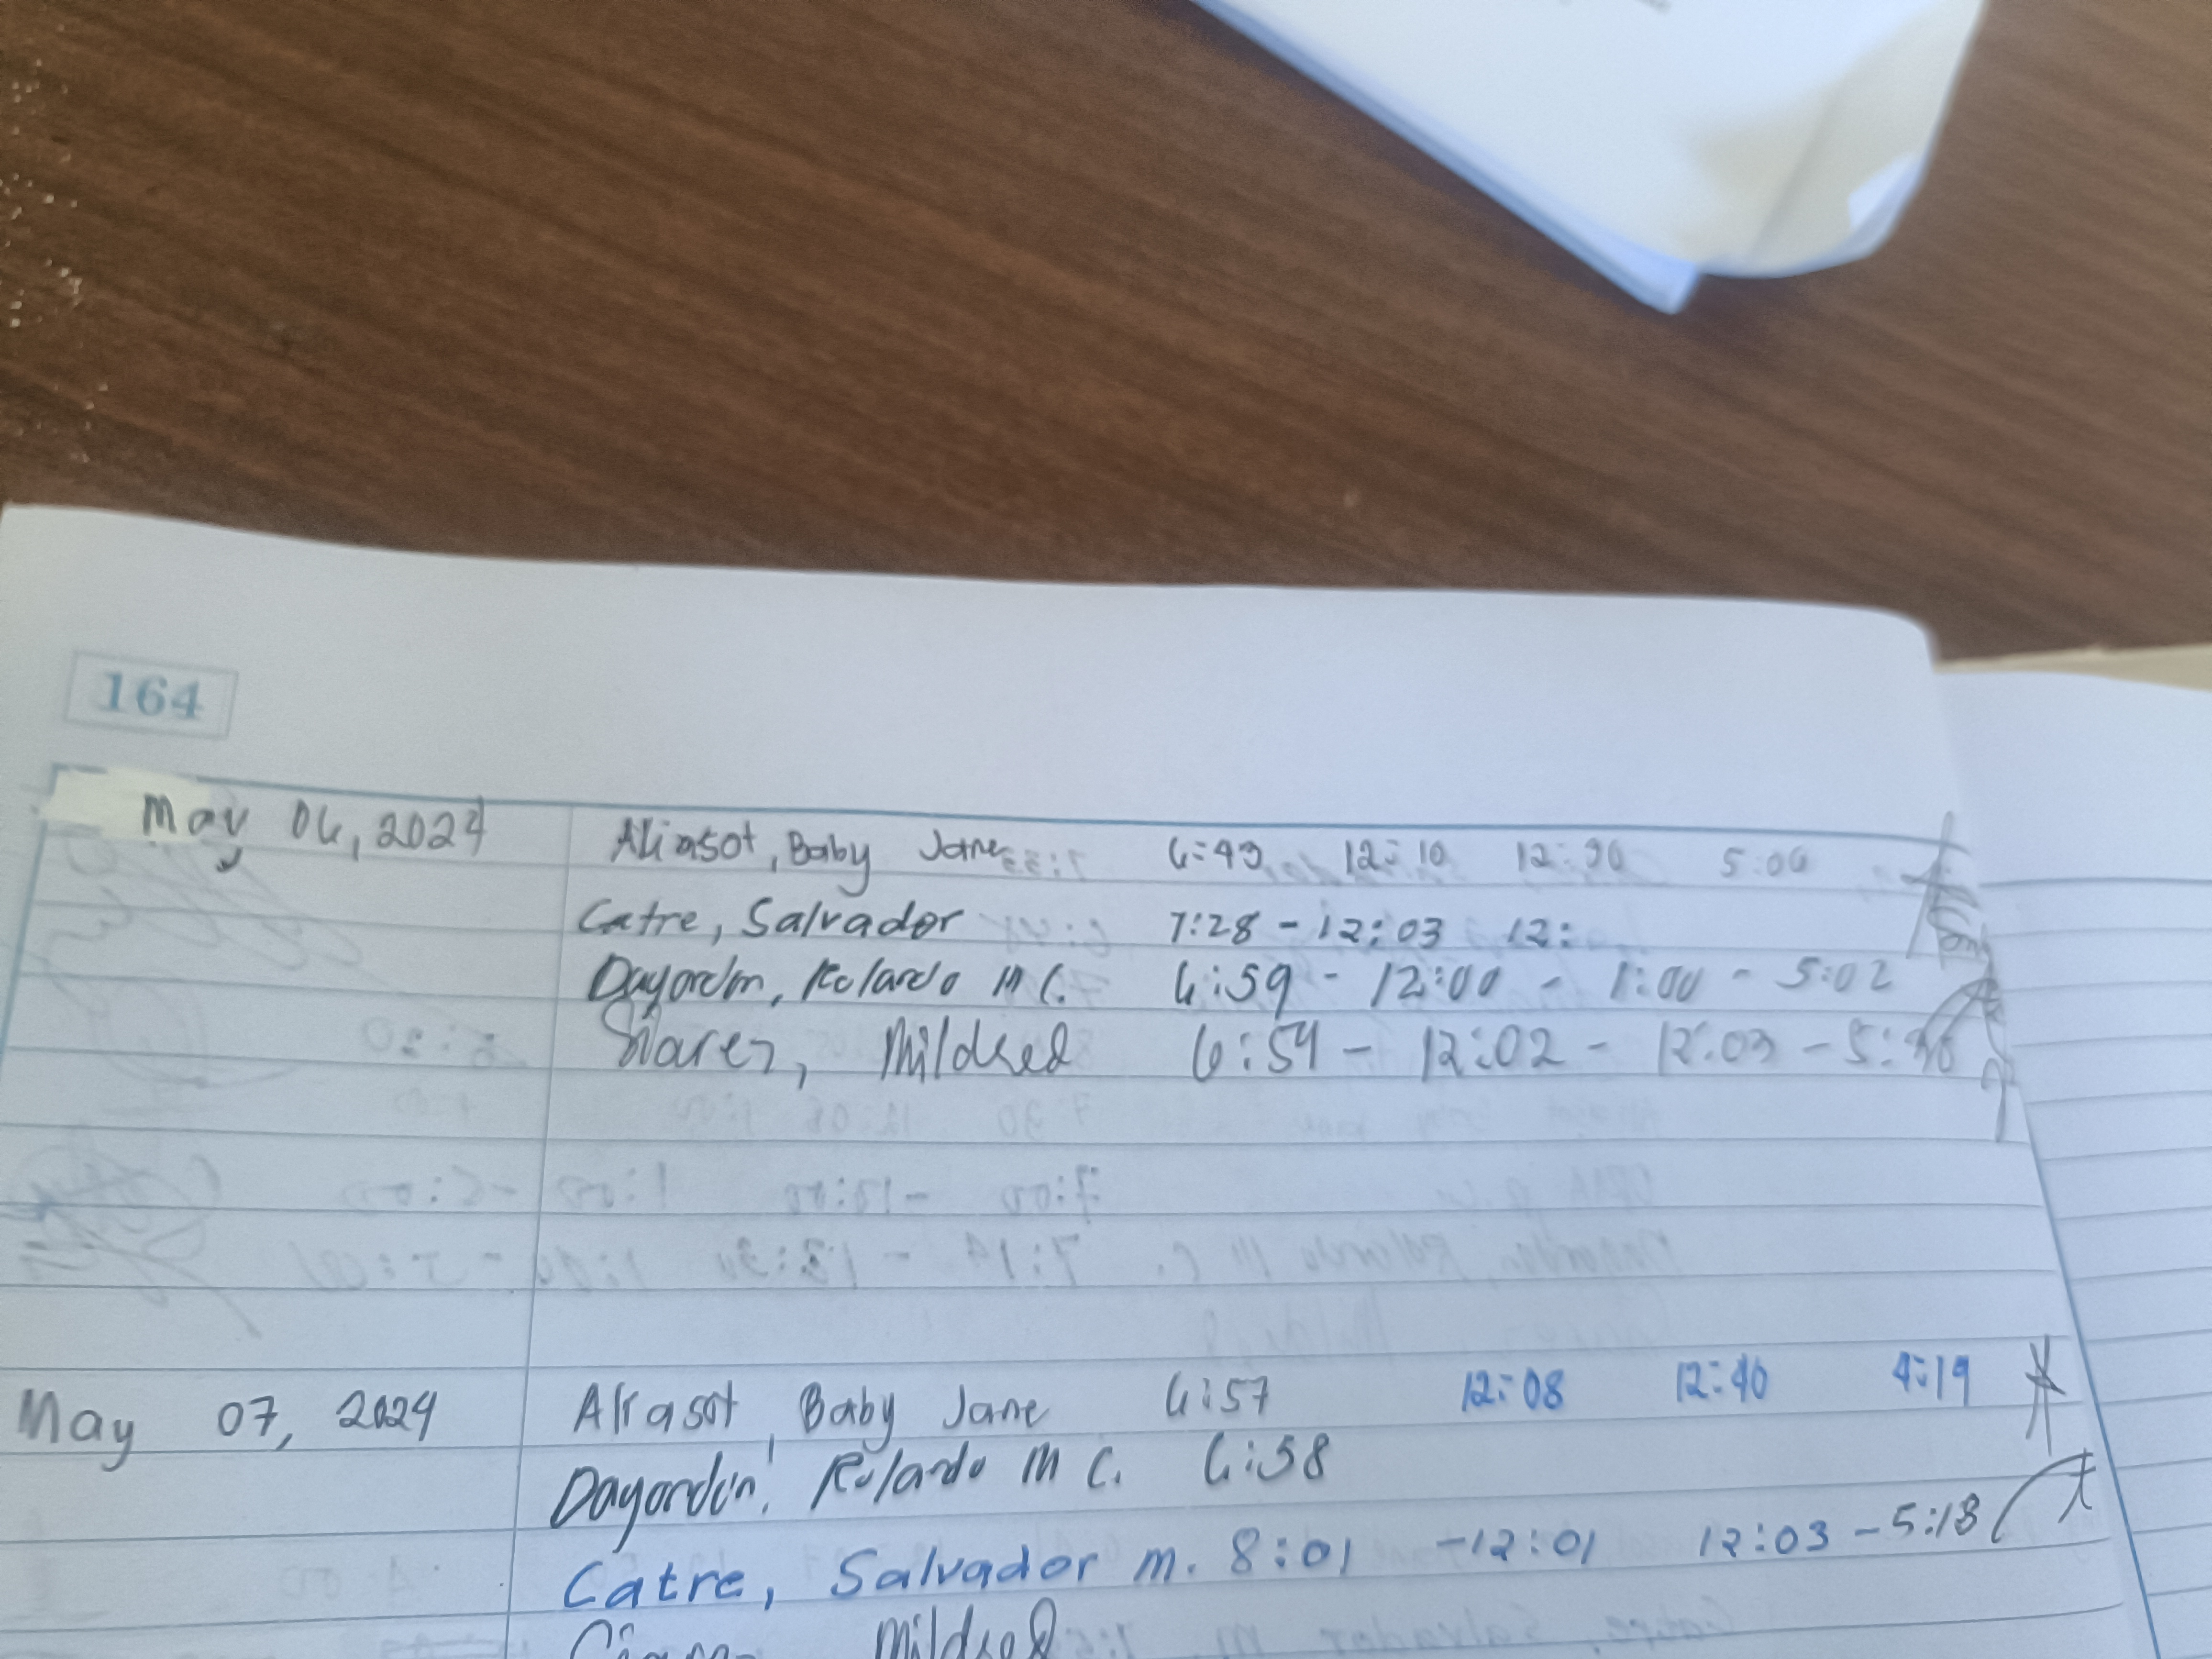 164
May 06, 2024 Aliasot, Baby Jane 6:49 12:10 12:30 5:00
Catre, Salvador 7:28 - 12:03 12:
Dayordon, Rolando M C. 6:59 - 12:00 - 1:00 - 5:02
Mildred 6:54 - 12:02 - 12:03 - 5:
May 07, 2024 Aliasot, Baby Jane 6:57 12:08 12:40 4:19
Dayordon, Rolando M C. 6:58
Catre, Salvador m. 8:01 -12:01 12:03 - 5:13
Mildred